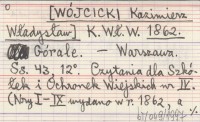 [WÓJCICKI Kazimierz
Władysław] K. Wł. W. 1862.
Górale. — Warszawa.
Ss. 43, 12°. Czytania dla Szkó-
łek i Ochronek Wiejskich nr IV.
(Nry I–IX wydano w r. 1862, a